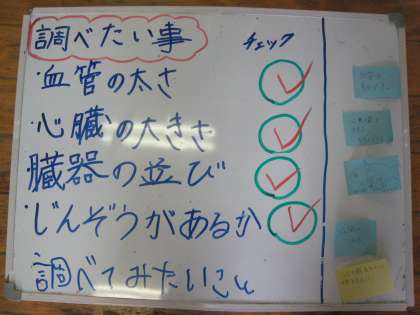 調べたい事
チェック
血管の太さ
心臓の大きさ
臓器の並び
じんぞうがあるか
調べてみたいこと